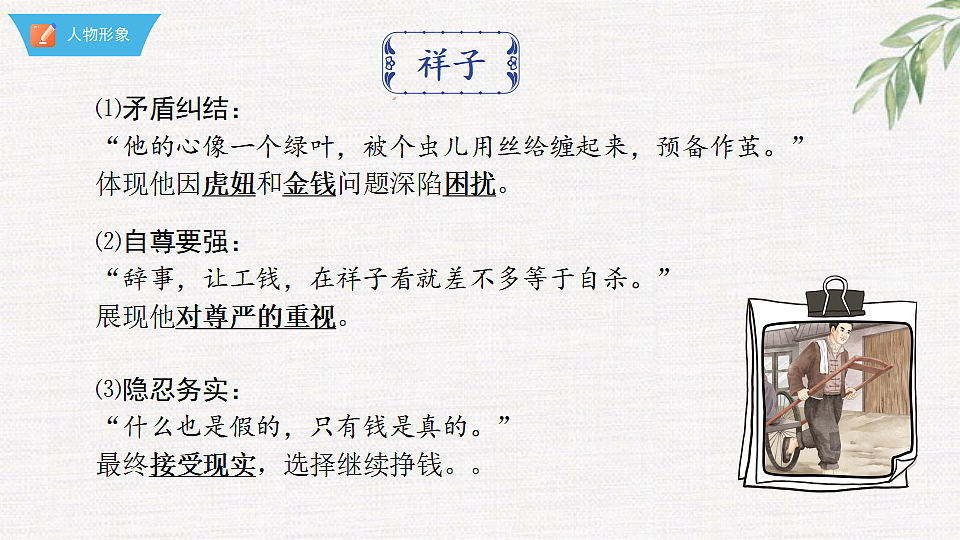 人物形象
祥子
⑴矛盾纠结：
“他的心像一个绿叶，被个虫儿用丝给缠起来，预备作茧。”
体现他因虎妞和金钱问题深陷困扰。
⑵自尊要强：
“辞事，让工钱，在祥子看就差不多等于自杀。”
展现他对尊严的重视。
⑶隐忍务实：
“什么也是假的，只有钱是真的。”
最终接受现实，选择继续挣钱。。